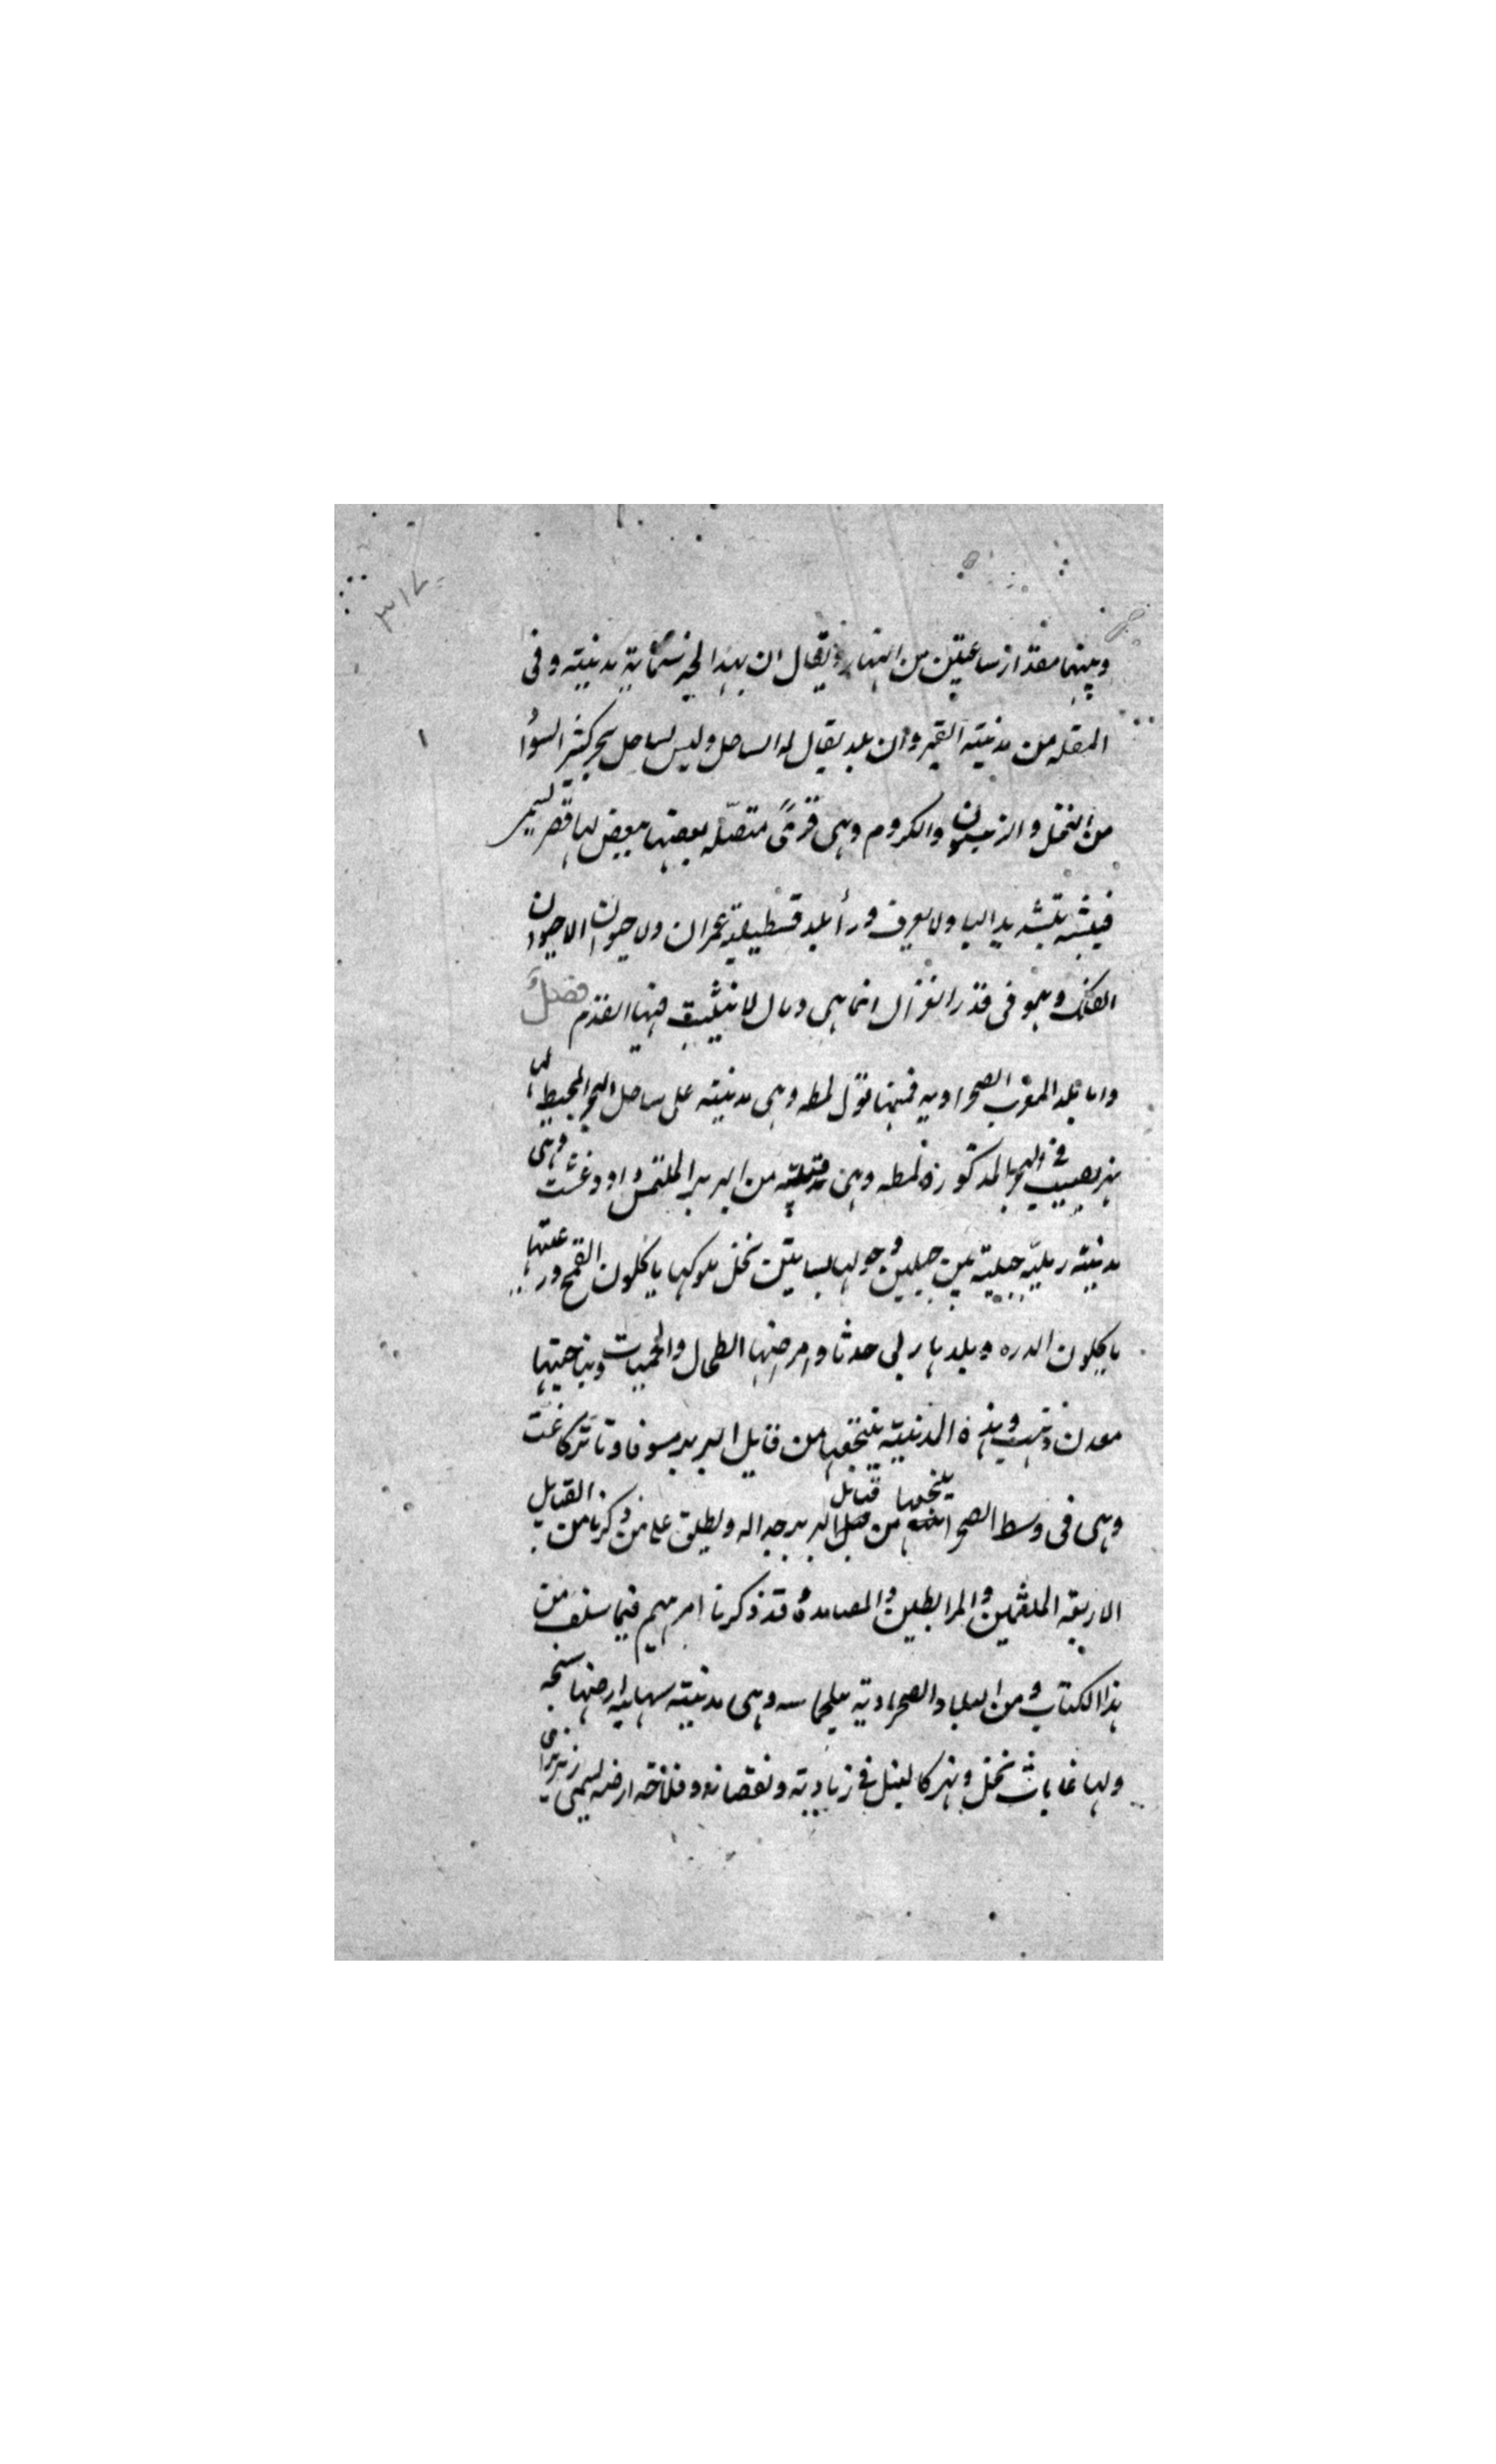 ٣١٧
وبينهما مقدار ساعتين من النهار ويقال ان بهذا الجبل ستماية مدينته وفى
المقله من مدنيته القيروان بلد يقال له الساحل وليس بساحل بحر كثير السوا
من النخل والزيتون والكروم وهى قرىً متصّله بعضها ببعض لها قصر يسمى
فيشه بتشديد اليا ولا يعرف ورأ بلد قسطيلية عمران ولا حيوان الا حيوان
الفنك وهو فى قدر الغزال انما هى رمال لا تثبت فيها القدم فصلٌ
واما بلد المغرب الصحراويه فمنها نول لمطه وهى مدنيته على ساحل البحر المحيط لها
نهر يصب فى البحر المذكورة لمطه وهى قبيلته من البربر الملثمين واودغشت وهى
مدنيته رمليّه جبليته بين جبلين وحولها بساتين نخل ملوكها ياكلون القمح ورعيتها
ياكلون الدره وبلدها ربى حدثا وامرضها الطحال والحميات وبناحيتها
معدن ذهب وهذه المدنيته ينتجعها من قايل البربر مسوفا وتاتركاغت
وهى فى وسط الصحرا ينتجعها من قبائل البربر جداله ويطلق على من ذكرنا من القبايل
الاربعة الملثمين والمرابطين والمصامده قد ذكرنا امرهم فيما سلف من
هذا الكتاب ومن البلاد الصحراوية سجلماسه وهى مدنيته سهليه ارضها سبخه
ولها غابات نخل ونهر كالنيل فى زيادته ونقصانه وفلاحة ارضه يسمى